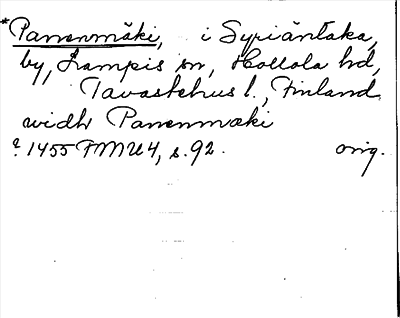 *Panenmäki, i Syriäntaka,
by, Lampis sn, Hollola hd,
Tavastehus l., Finland
widh Panenmæki
? 1455 FMU 4, s. 92. orig.